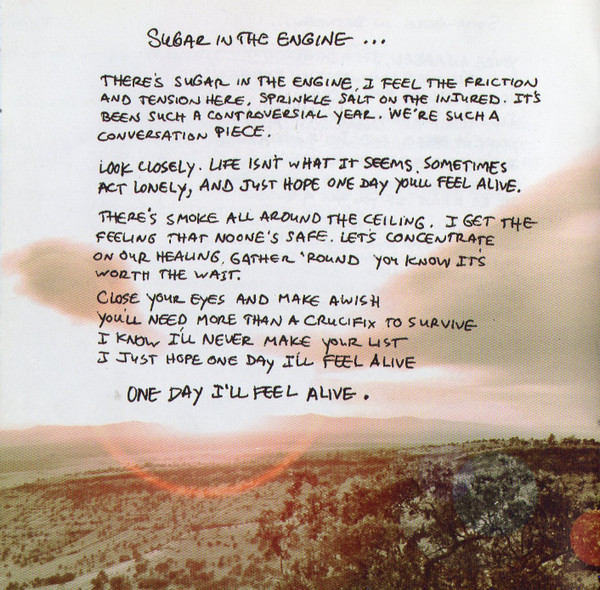 SUGAR IN THE ENGINE ...
THERE'S SUGAR IN THE ENGINE, I FEEL THE FRICTION
AND TENSION HERE, SPRINKLE SALT ON THE INJURED. IT'S
BEEN SUCH A CONTROVERSIAL YEAR. WE'RE SUCH A
CONVERSATION PIECE.
LOOK CLOSELY. LIFE ISN'T WHAT IT SEEMS. SOMETIMES
ACT LONELY, AND JUST HOPE ONE DAY YOU'LL FEEL ALIVE.
THERE'S SMOKE ALL AROUND THE CEILING. I GET THE
FEELING THAT NOONE'S SAFE. LET'S CONCENTRATE
ON OUR HEALING. GATHER 'ROUND YOU KNOW IT'S
WORTH THE WAIT.
CLOSE YOUR EYES AND MAKE A WISH
YOU'LL NEED MORE THAN A CRUCIFIX TO SURVIVE
I KNOW I'LL NEVER MAKE YOUR LIST
I JUST HOPE ONE DAY I'LL FEEL ALIVE
ONE DAY I'LL FEEL ALIVE.